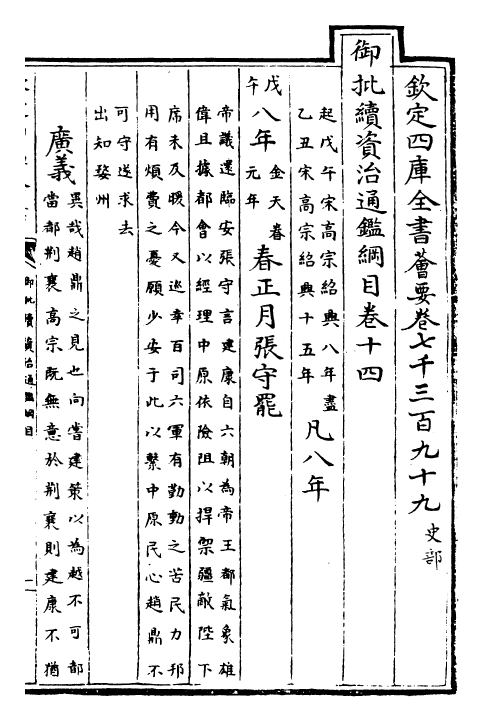 欽定四庫全書薈要卷七千三百九十九 史部
御批續資治通鑑綱目卷十四
起戊午宋高宗紹興八年盡
乙丑宋高宗紹興十五年
凡八年
戊午
八年
金天眷
元年
春正月張守罷
帝議還臨安張守言建康自六朝為帝王都氣象雄
偉且據都會以經理中原依險阻以捍禦疆敵陛下
席未及暖今又巡幸百司六軍有勤動之苦民力邦
用有煩費之憂願少安于此以繫中原民心趙鼎不
可守遂求去
出知婺州
廣義
異哉趙鼎之見也向嘗建策以為越不可都
當都荆襄高宗既無意於荆襄則建康不猶
御批續資治通鑑綱目
一